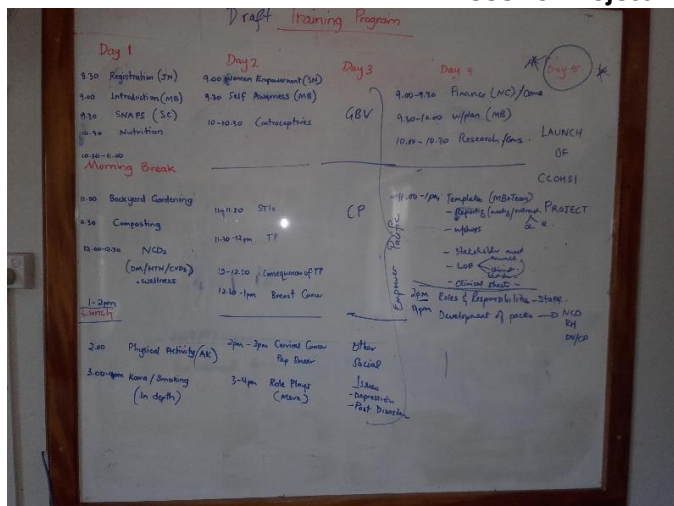 Draft Training Program
Day 1
8.30 Registration (JN)
9.00 Introduction (MB)
9.30 SNAPS (SC)
10.00 Nutrition
10.30-11.00
Morning Break
11.00 Backyard Gardening
11.30 Composting
12.00-12.30 NCDs
(DM/HTN/CVDs)
+ wellness
1-2pm
Lunch
2.00 Physical Activity (AK)
3.00-4pm Kava/Smoking
(In depth)
Day 2
9.00 Women Empowerment (SN)
9.30 Self Awarness (MB)
10-10.30 Contraceptives
11-11.30 STIs
11.30-12pm TP
12-12.30 Consequences of TP
12.30-1pm Breast Cancer
2pm-3pm Cervical Cancer
Pap Smear
3-4pm Role Plays
(Mere)
Day 3
GBV
CP
Other
Social
Issues
- Depression
- Post Disaster
Empower Pacific
Day 4
9.00-9.30 Finance (NC)
9.30-10.00 w/plan (MB)
10.00-10.30 Research
11.00-1pm Template (MB+Team)
- Reporting
- w/shops
- Stakeholder meet
- LOP
- Clinical sheets
2pm Roles & Responsibilities - Staff
4pm Development of packs → NCD
RH
Day 5
LAUNCH
OF
CCOHSI
PROJECT